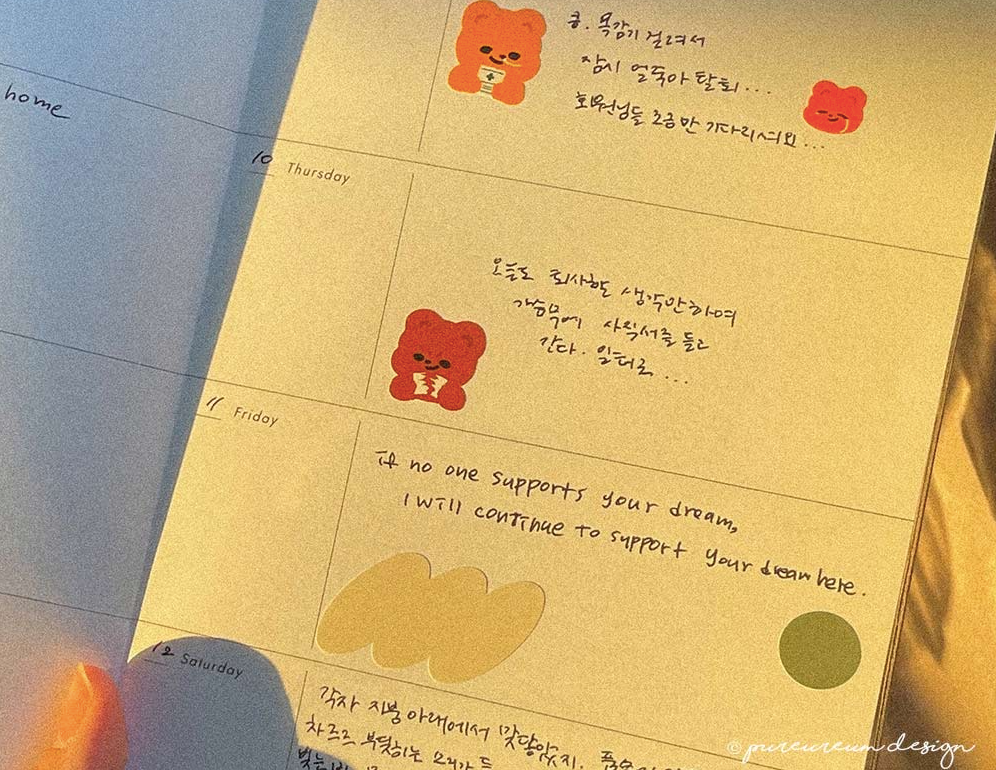 home
흥. 목감기 걸려서
잠시 얼죽아 탈퇴...
회원님들 조금만 기다리셔요...
10 Thursday
오늘도 퇴사할 생각만하며
가슴폭에 사직서를 들고
간다. 일터로...
11 Friday
If no one supports your dream,
I will continue to support your dream here.
12 Saturday
각자 지붕 아래에서 맞닿았지.
차르르 부딪히는 소리가
© pureureum design